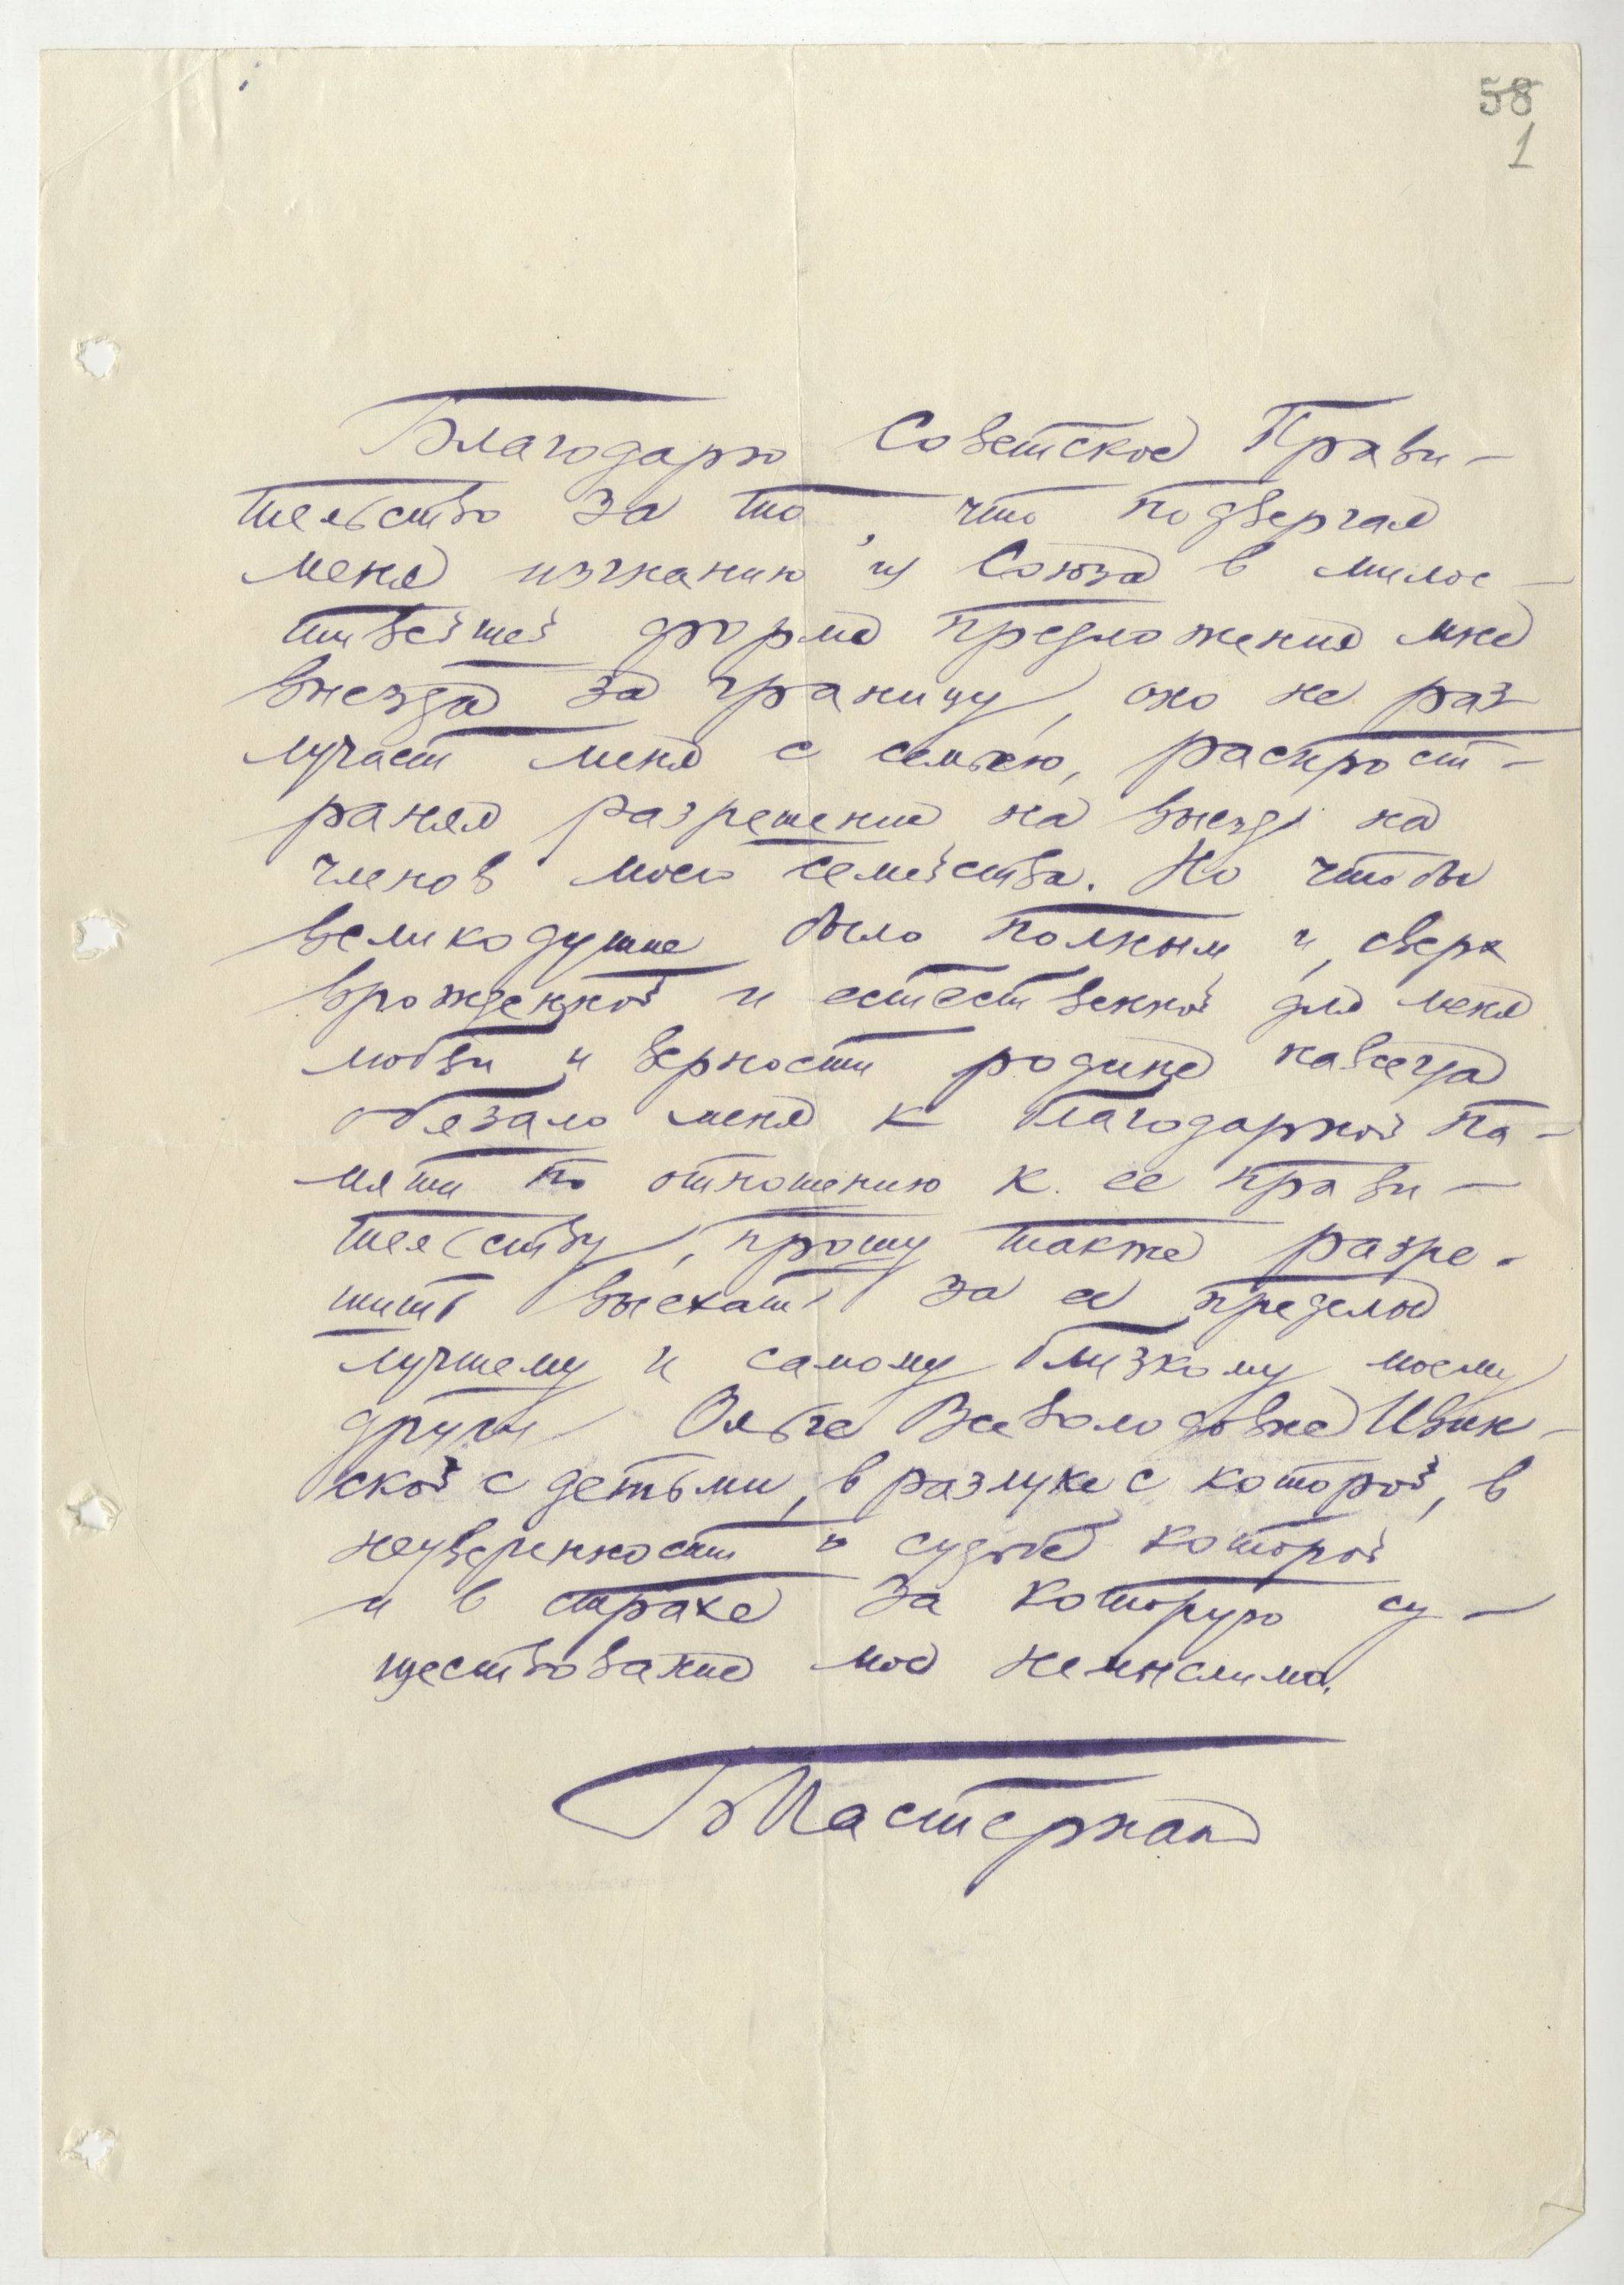 58
1
Благодарю Советское Прави-
тельство за то, что подвергая
меня изгнанию из Союза в милос-
тивейшей форме предложения мне
выезда за границу, оно не раз
лучает меня с семьею, распрост-
раняя разрешение на выезд на
членов моего семейства. Но чтобы
великодушие было полным и, сверх
врожденной и естественной для меня
любви и верности родине навсегда
обязало меня к благодарной па-
мяти по отношению к ее прави-
тельству, прошу также разре-
шить выехать за ее пределы
лучшему и самому близкому моему
другу Ольге Всеволодовне Ивин-
ской с детьми, в разлуке с которой, в
неуверенности в судьбе которой
и в страхе за которую су-
ществование мое немыслимо.
БПастернак